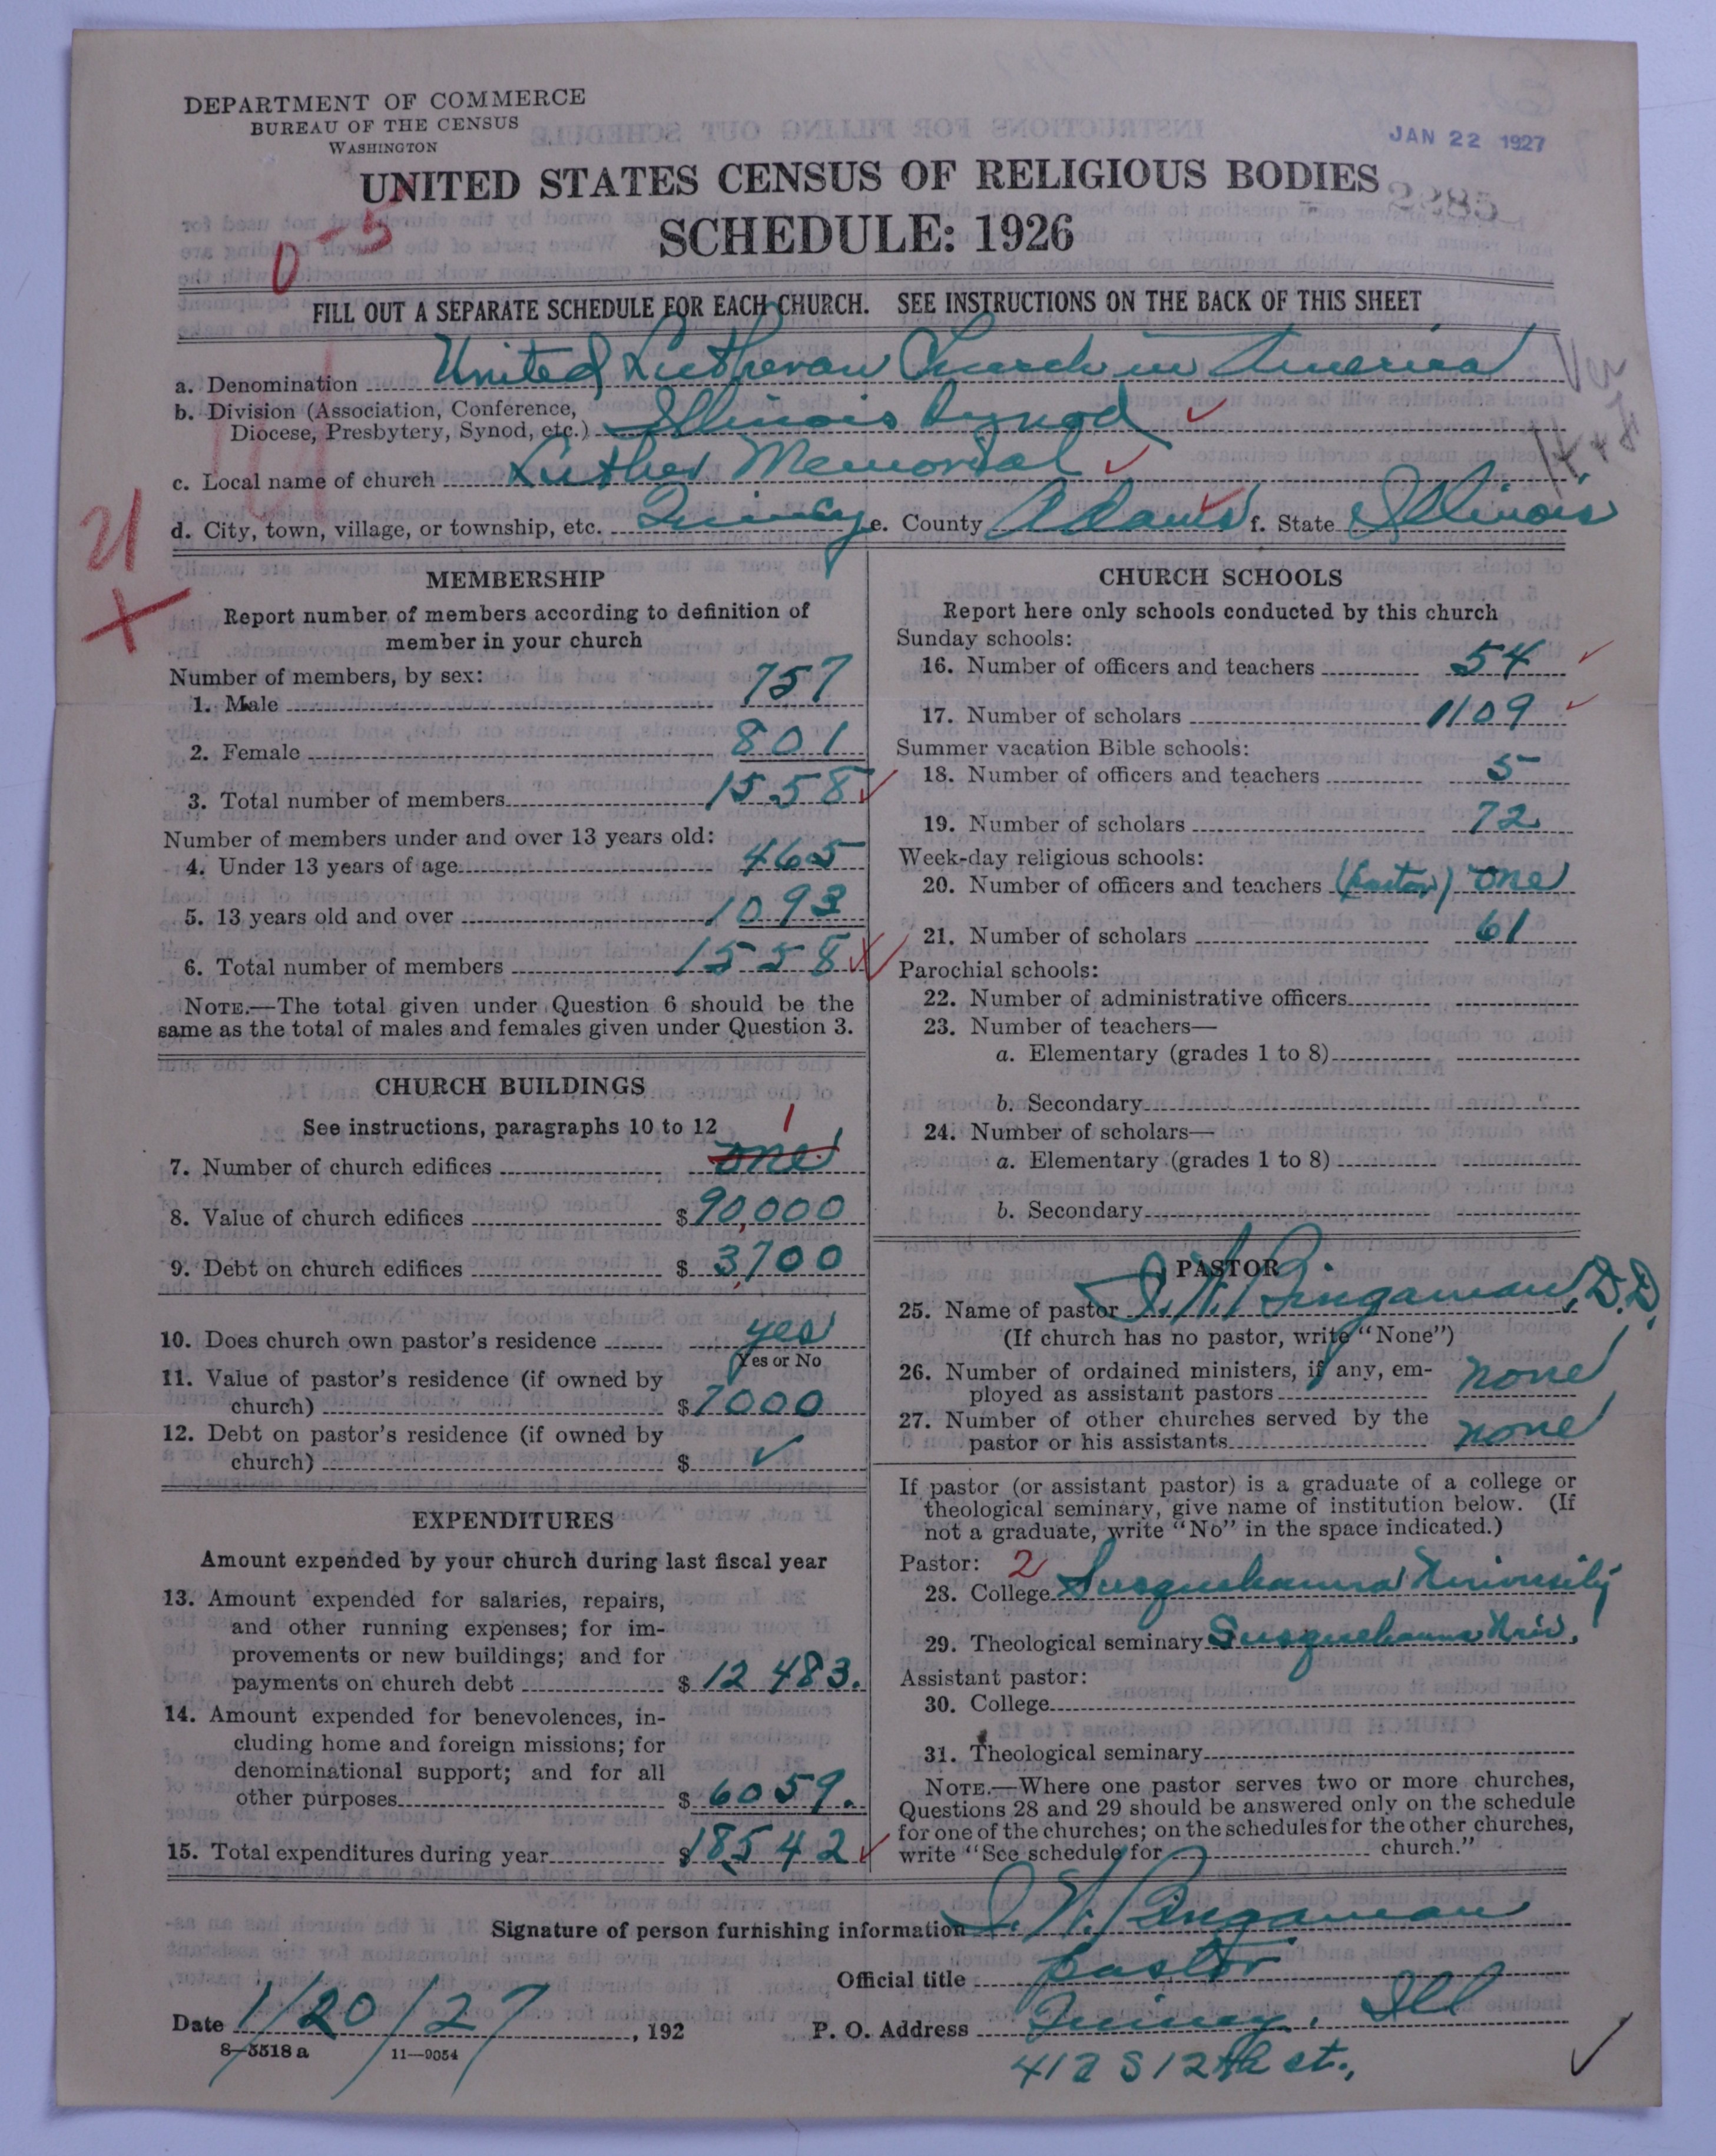 DEPARTMENT OF COMMERCE
BUREAU OF THE CENSUS
WASHINGTON
JAN 22 1927
UNITED STATES CENSUS OF RELIGIOUS BODIES
2285
SCHEDULE: 1926
0-5
FILL OUT A SEPARATE SCHEDULE FOR EACH CHURCH. SEE INSTRUCTIONS ON THE BACK OF THIS SHEET
a. Denomination United Lutheran Church in America
b. Division (Association, Conference,
Diocese, Presbytery, Synod, etc.) Illinois Synod
c. Local name of church Luther Memorial
d. City, town, village, or township, etc. Quincy e. County Adams f. State Illinois
21
MEMBERSHIP
Report number of members according to definition of
member in your church
Number of members, by sex:
1. Male 757
2. Female 801
3. Total number of members 1558
Number of members under and over 13 years old:
4. Under 13 years of age 465
5. 13 years old and over 1093
6. Total number of members 1558
NOTE.—The total given under Question 6 should be the
same as the total of males and females given under Question 3.
CHURCH BUILDINGS
See instructions, paragraphs 10 to 12
1
7. Number of church edifices one
8. Value of church edifices $ 90,000
9. Debt on church edifices $ 3,700
10. Does church own pastor's residence yes
Yes or No
11. Value of pastor's residence (if owned by
church) $ 7000
12. Debt on pastor's residence (if owned by
church) $ ✓
EXPENDITURES
Amount expended by your church during last fiscal year
13. Amount expended for salaries, repairs,
and other running expenses; for im-
provements or new buildings; and for
payments on church debt $ 12 483.
14. Amount expended for benevolences, in-
cluding home and foreign missions; for
denominational support; and for all
other purposes $ 6059.
15. Total expenditures during year $ 18,542
CHURCH SCHOOLS
Report here only schools conducted by this church
Sunday schools:
16. Number of officers and teachers 54
17. Number of scholars 1109
Summer vacation Bible schools:
18. Number of officers and teachers 5
19. Number of scholars 72
Week-day religious schools:
20. Number of officers and teachers (Pastor) one
21. Number of scholars 61
Parochial schools:
22. Number of administrative officers
23. Number of teachers—
a. Elementary (grades 1 to 8)
b. Secondary
24. Number of scholars—
a. Elementary (grades 1 to 8)
b. Secondary
PASTOR
25. Name of pastor S. W. Bingaman, D.D.
(If church has no pastor, write "None")
26. Number of ordained ministers, if any, em-
ployed as assistant pastors none
27. Number of other churches served by the
pastor or his assistants none
If pastor (or assistant pastor) is a graduate of a college or
theological seminary, give name of institution below. (If
not a graduate, write "No" in the space indicated.)
Pastor: 2
28. College Susquehanna University
29. Theological seminary Susquehanna Univ.
Assistant pastor:
30. College
31. Theological seminary
NOTE.—Where one pastor serves two or more churches,
Questions 28 and 29 should be answered only on the schedule
for one of the churches; on the schedules for the other churches,
write "See schedule for church."
Signature of person furnishing information Bingaman
Official title Pastor
Date 1/20/27, 192
P. O. Address Quincy, Ill
8-5518 a 11-9054
412 S 12th st.,